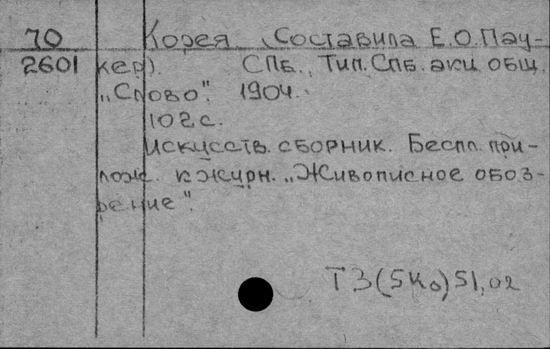 70 Корея (Составила Е.О.Пау-
2601 кер). СПБ., Тип. Спб. акц. общ.
„Слово". 1904.
102 с.
Искусств. сборник. Беспл. при-
лож. к журн. „Живописное обоз-
рение".
Т3(5Ко)51,02